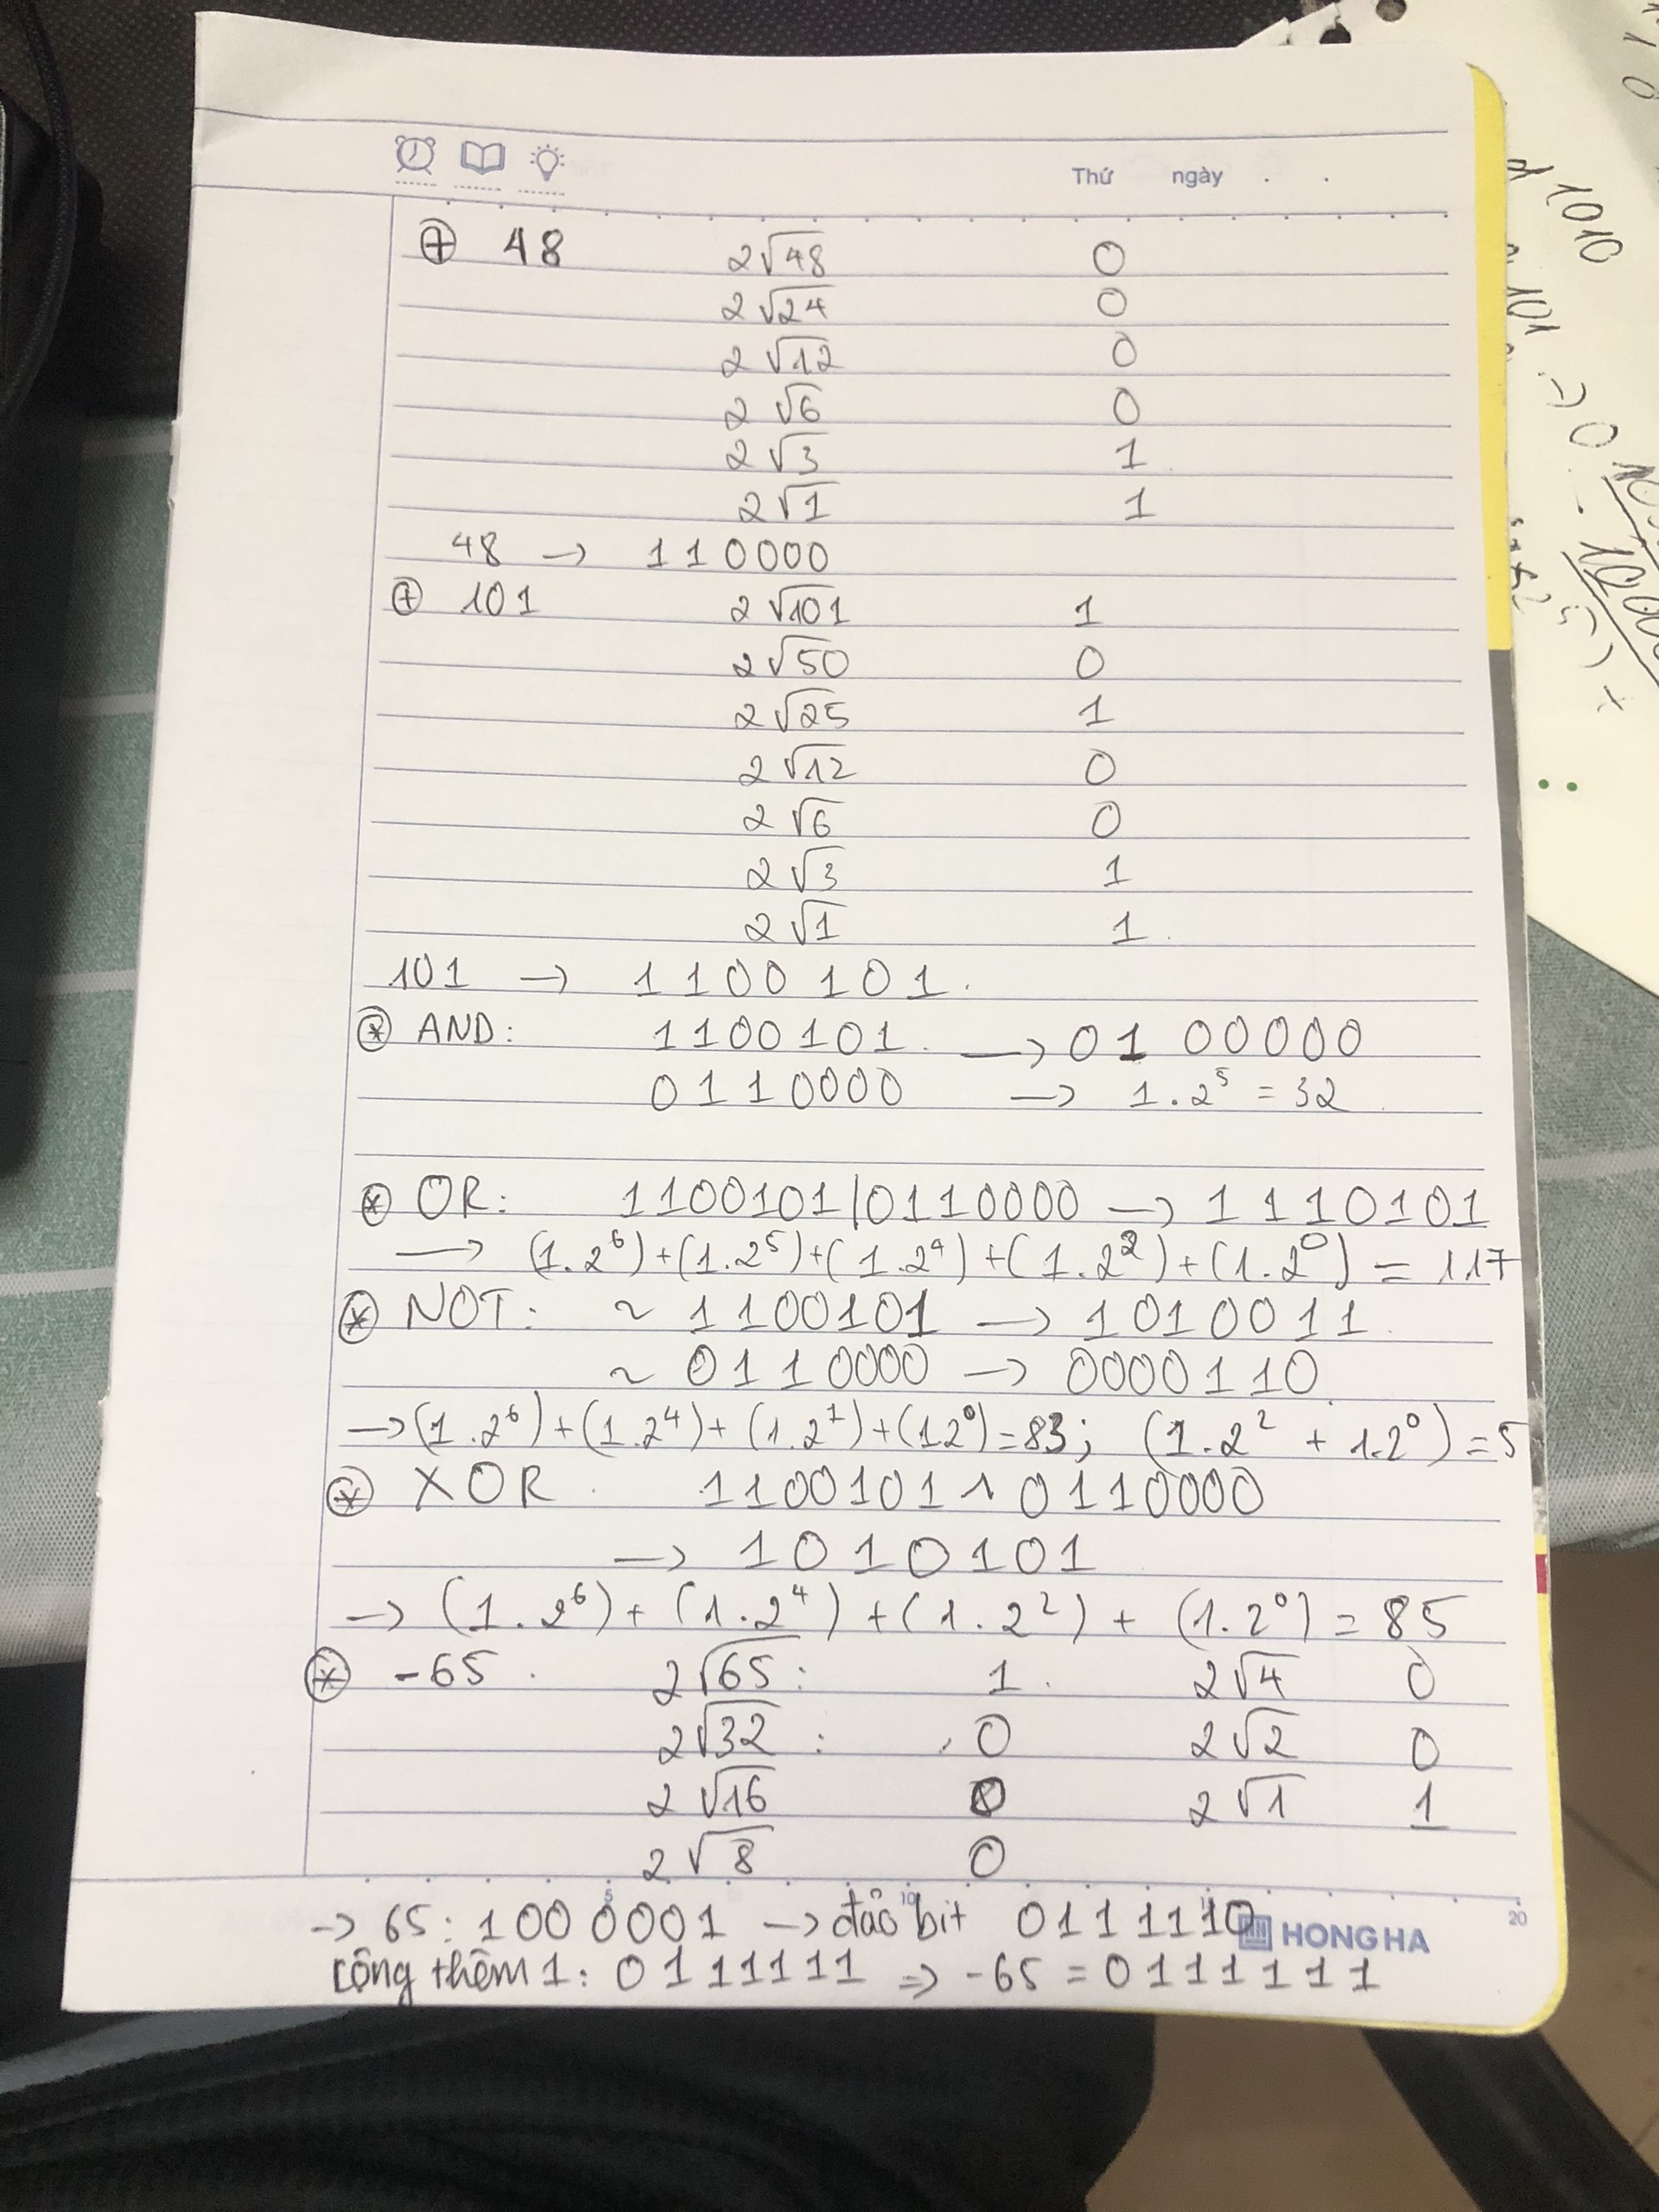 Thứ ngày . .
⊕ 48 2√48 0
2√24 0
2√12 0
2√6 0
2√3 1
2√1 1
48 → 110000
⊕ 101 2√101 1
2√50 0
2√25 1
2√12 0
2√6 0
2√3 1
2√1 1
101 → 1100101.
⊛ AND: 1100101. → 0100000
0110000 → 1.2⁵ = 32
⊛ OR: 1100101|0110000 → 1110101
→ (1.2⁶)+(1.2⁵)+(1.2⁴)+(1.2²)+(1.2⁰) = 117
⊛ NOT: ~ 1100101 → 1010011
~ 0110000 → 0000110
→(1.2⁶)+(1.2⁴)+(1.2¹)+(1.2⁰)=83; (1.2² + 1.2⁰)=5
⊛ XOR 1100101 ^ 0110000
→ 1010101
→ (1.2⁶)+(1.2⁴)+(1.2²)+(1.2⁰) = 85
⊛ -65 2√65: 1. 2√4 0
2√32 : 0 2√2 0
2√16 0 2√1 1
2√8 0
5 10 20
→ 65: 1000001 → đảo bit 0111110
HONG HA
cộng thêm 1: 0111111 ⇒ -65 = 0111111
1010
101